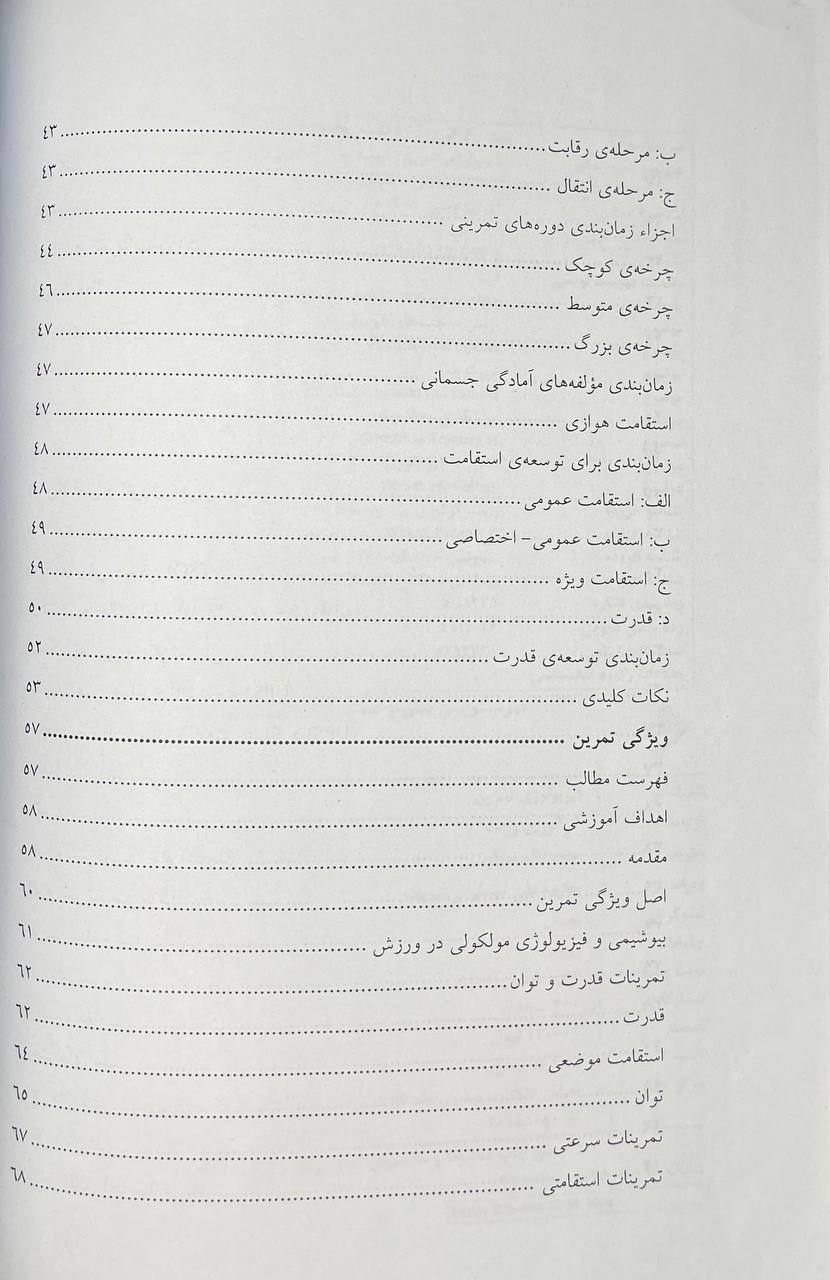 ب: مرحله‌ی رقابت ................ ٤٣
ج: مرحله‌ی انتقال ................ ٤٣
اجزاء زمان‌بندی دوره‌های تمرینی ................ ٤٣
چرخه‌ی کوچک ................ ٤٤
چرخه‌ی متوسط ................ ٤٦
چرخه‌ی بزرگ ................ ٤٧
زمان‌بندی مؤلفه‌های آمادگی جسمانی ................ ٤٧
استقامت هوازی ................ ٤٧
زمان‌بندی برای توسعه‌ی استقامت ................ ٤٨
الف: استقامت عمومی ................ ٤٨
ب: استقامت عمومی- اختصاصی ................ ٤٩
ج: استقامت ویژه ................ ٤٩
د: قدرت ................ ٥٠
زمان‌بندی توسعه‌ی قدرت ................ ٥٢
نکات کلیدی ................ ٥٣
ویژگی تمرین ................ ٥٧
فهرست مطالب ................ ٥٧
اهداف آموزشی ................ ٥٨
مقدمه ................ ٥٨
اصل ویژگی تمرین ................ ٦٠
بیوشیمی و فیزیولوژی مولکولی در ورزش ................ ٦١
تمرینات قدرت و توان ................ ٦٢
قدرت ................ ٦٢
استقامت موضعی ................ ٦٤
توان ................ ٦٥
تمرینات سرعتی ................ ٦٧
تمرینات استقامتی ................ ٦٨